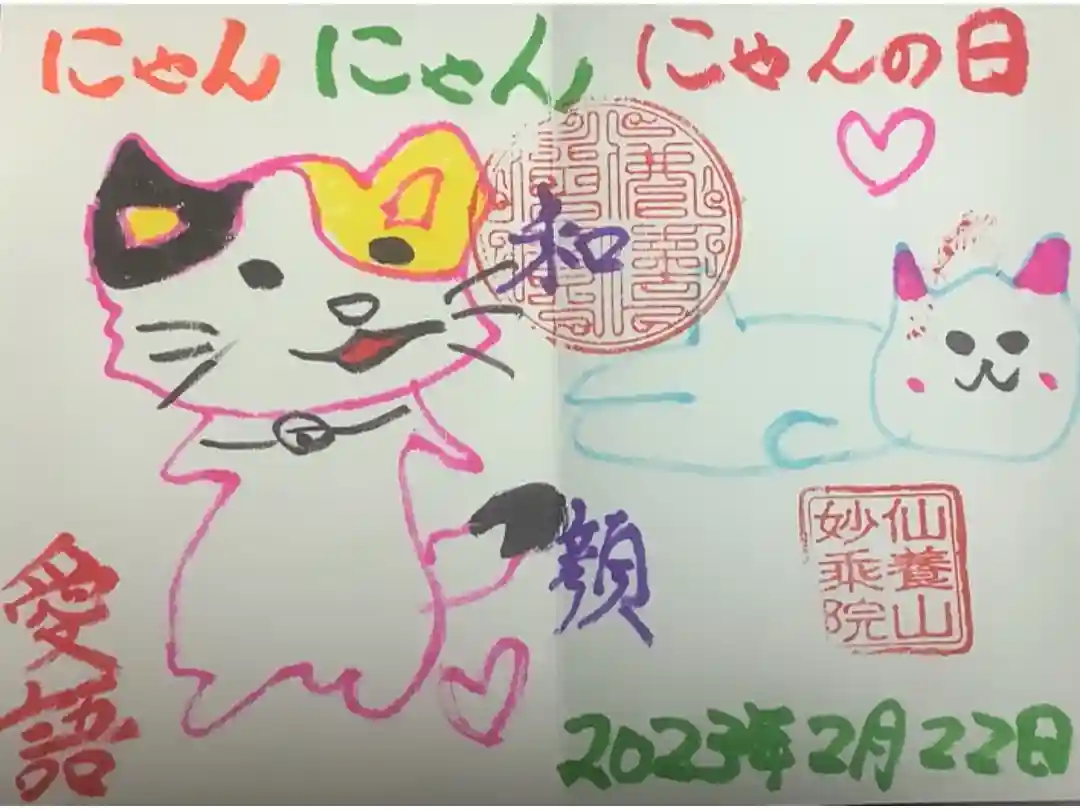 にゃん にゃん にゃんの日
和顔
愛語
仙養山
妙乘院
2023年2月22日